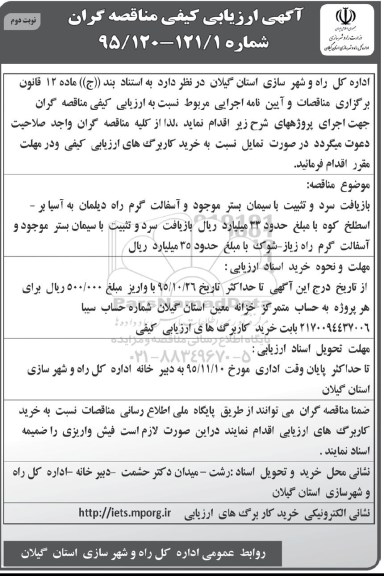 آگهی ارزیابی کیفی مناقصه گران
شماره ۱۲۱/۱-۹۵/۱۲۰
نوبت دوم
اداره کل راه و شهر سازی استان گیلان در نظر دارد به استناد بند ((ج)) ماده ۱۲ قانون
برگزاری مناقصات و آیین نامه اجرایی مربوط نسبت به ارزیابی کیفی مناقصه گران
جهت اجرای پروژههای شرح زیر اقدام نماید ،لذا از کلیه مناقصه گران واجد صلاحیت
دعوت میگردد در صورت تمایل نسبت به خرید کاربرگ های ارزیابی کیفی ودر مهلت
مقرر اقدام فرمائید.
موضوع مناقصه:
بازیافت سرد و تثبیت با سیمان بستر موجود و آسفالت گرم راه دیلمان به آسیا بر -
اسطلخ کوه با مبلغ حدود ۳۳ میلیارد ریال بازیافت سرد و تثبیت با سیمان بستر موجود و
آسفالت گرم راه زیاز-شوک با مبلغ حدود ۳۵ میلیارد ریال
مهلت و نحوه خرید اسناد ارزیابی :
از تاریخ درج این آگهی تا حداکثر تاریخ ۹۵/۱۰/۲۶ با واریز مبلغ ۵۰۰/۰۰۰ ریال برای
هر پروژه به حساب متمرکز خزانه معین استان گیلان شماره حساب سیبا
۲۱۷۰۰۹۴۴۳۷۰۰۶ بابت خرید کاربرگ های ارزیابی کیفی
مهلت تحویل اسناد ارزیابی :
تا حداکثر پایان وقت اداری مورخ ۹۵/۱۱/۱۰ به دبیر خانه اداره کل راه و شهر سازی
استان گیلان
ضمنا مناقصه گران می توانند از طریق پایگاه ملی اطلاع رسانی مناقصات نسبت به خرید
کاربرگ های ارزیابی اقدام نمایند دراین صورت لازم است فیش واریزی را ضمیمه
اسناد نمایند .
نشانی محل خرید و تحویل اسناد :رشت - میدان دکتر حشمت -دبیر خانه -اداره کل راه
و شهرسازی استان گیلان
نشانی الکترونیکی خرید کاربرگ های ارزیابی http://iets.mporg.ir
روابط عمومی اداره کل راه و شهر سازی استان گیلان